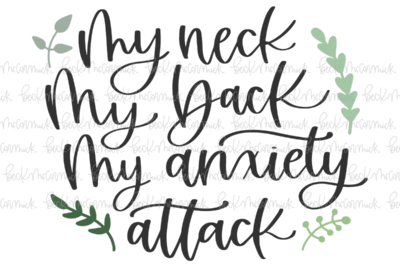 My neck
My back
My anxiety
attack